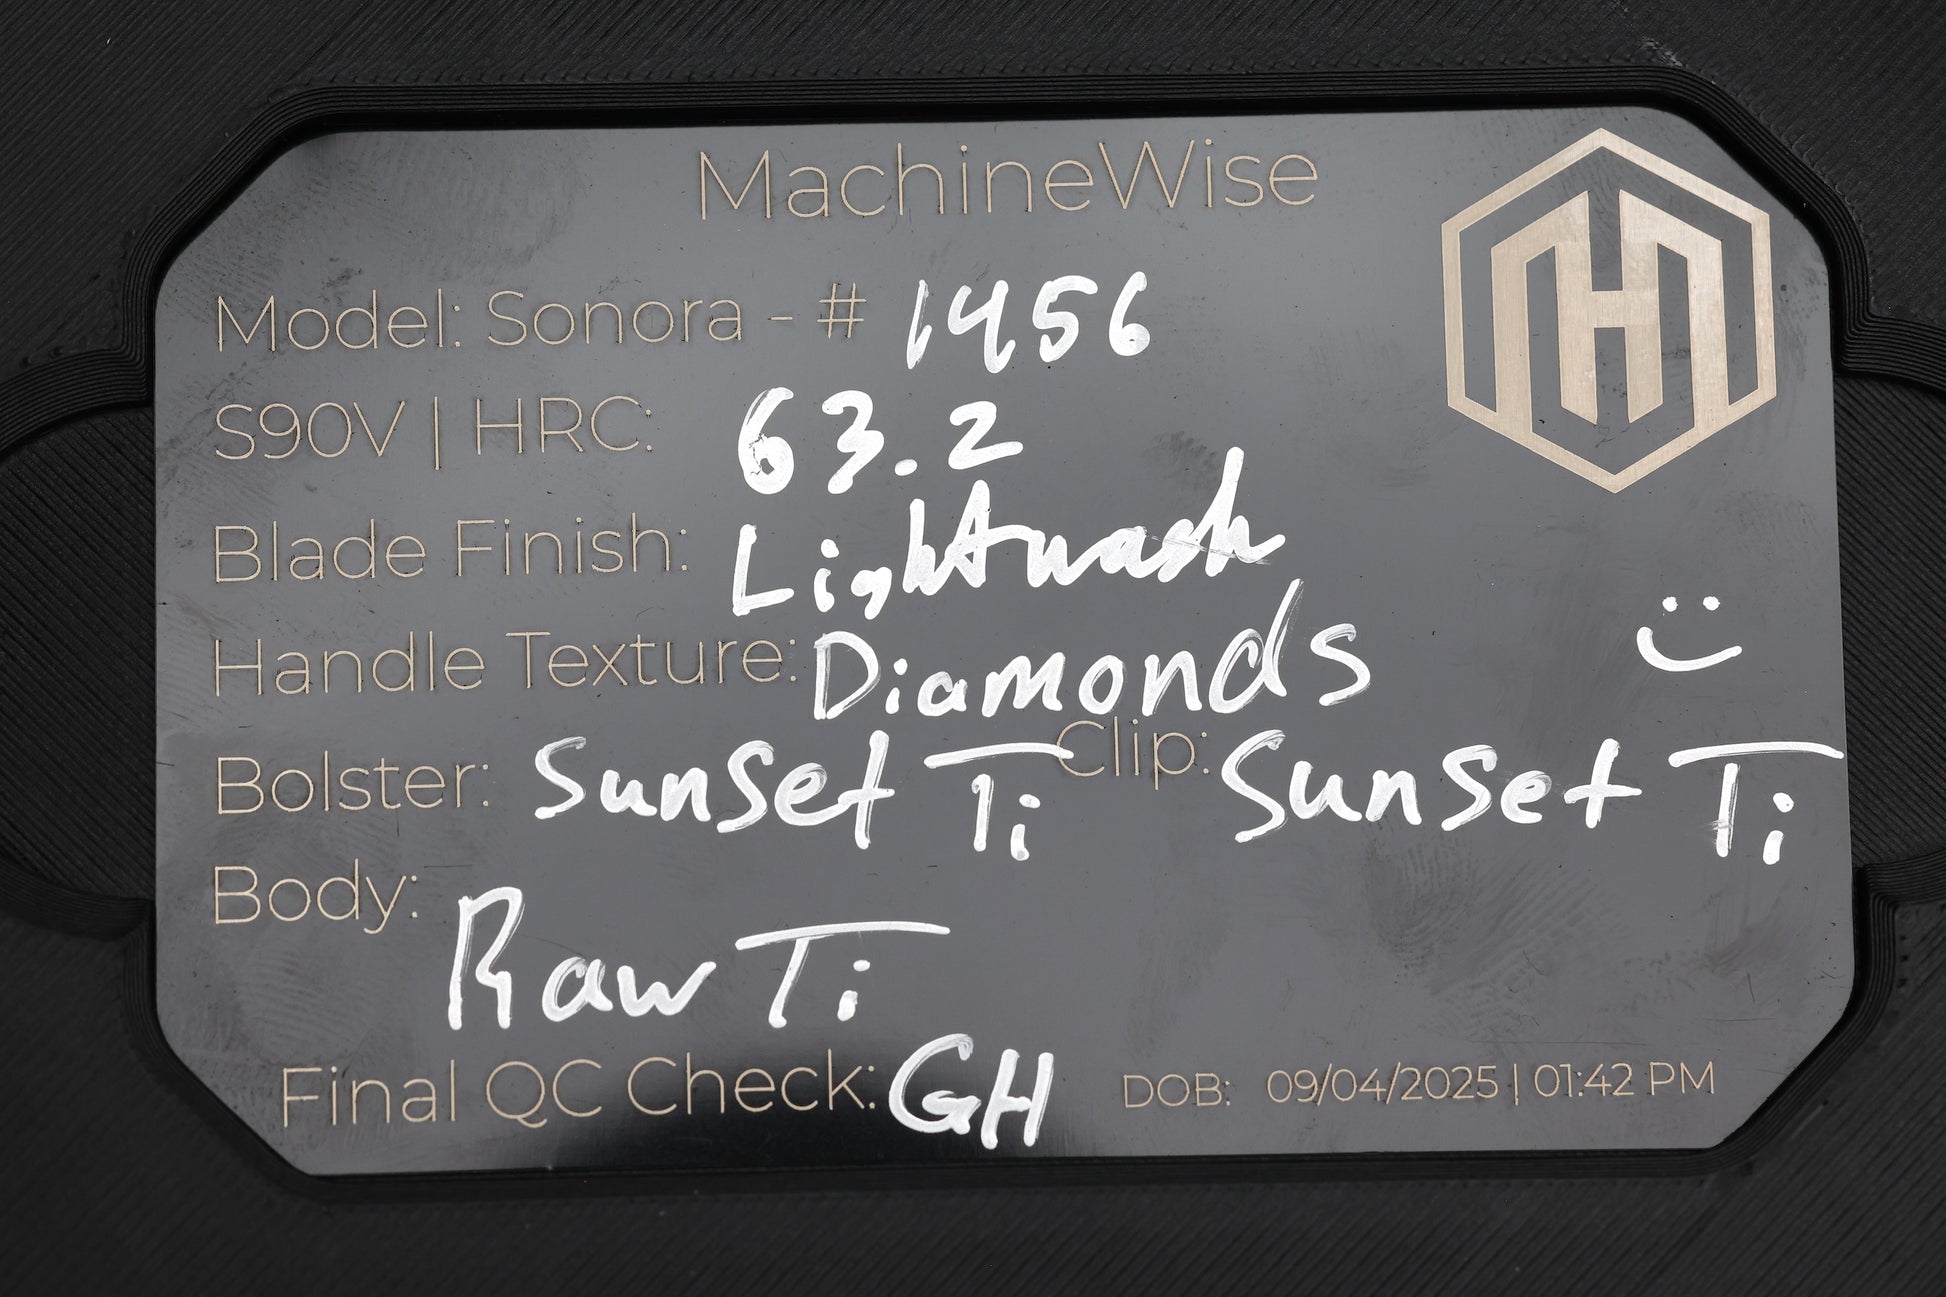 MachineWise
Model: Sonora - # 1456
S90V | HRC: 63.2
Blade Finish: Lightwash
Handle Texture: Diamonds
Bolster: Sunset Ti Clip: Sunset Ti
Body: Raw Ti
Final QC Check: GH DOB: 09/04/2025 | 01:42 PM